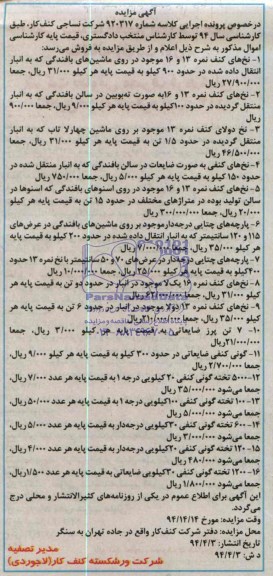 آگهی مزایده
درخصوص پرونده اجرایی کلاسه شماره ۹۲۰۳۱۷ شرکت نساجی کنف‌کار، طبق
کارشناسی سال ۹۴ توسط کارشناس منتخب دادگستری، قیمت پایه کارشناسی
اموال مذکور به شرح ذیل اعلام و از طریق مزایده به فروش می‌رسد:
۱- نخ‌های کنف نمره ۱۳ و ۱۶ موجود در روی ماشین‌های بافندگی که به انبار
انتقال داده شده در حدود ۹۰۰ کیلو به قیمت پایه هر کیلو ۳۱/۰۰۰ ریال، جمعا
۲۷/۹۰۰/۰۰۰ ریال
۲- نخ‌های کنف نمره ۱۳ و ۱۶ به صورت ته‌بوبین در سالن بافندگی که به انبار
منتقل گردیده در حدود ۱۰۰ کیلو به قیمت پایه هر کیلو ۹/۰۰۰ ریال، جمعا ۹۰۰/۰۰۰
ریال
۳- نخ دولای کنف نمره ۱۳ موجود بر روی ماشین چهارلا تاب که به انبار
منتقل گردیده در حدود ۱/۵ تن به قیمت پایه هر کیلو ۳۱/۰۰۰ ریال، جمعا
۴۶/۵۰۰/۰۰۰ ریال
۴- نخ‌های کنفی به صورت ضایعات در سالن بافندگی که به انبار منتقل شده در
حدود ۱۵۰ کیلو به قیمت پایه هر کیلو ۵/۰۰۰ ریال، جمعا ۷۵۰/۰۰۰ ریال
۵- نخ‌های کنف نمره ۱۳ و ۱۶ موجود در روی اسنوهای بافندگی که اسنوها در
سالن تولید بوده در متراژهای مختلف در حدود ۱۵ تن به قیمت پایه هر کیلو
۲۰/۰۰۰ ریال، جمعا ۳۰۰/۰۰۰/۰۰۰ ریال
۶- پارچه‌های چتایی درجه‌دار موجود بر روی ماشین‌های بافندگی در عرض‌های
۱۱۵ و ۱۲۰ سانتیمتر که به انبار انتقال داده شده در حدود ۲۰۰ کیلو به قیمت پایه
هر کیلو ۳۵/۰۰۰ ریال، جمعا ۷/۰۰۰/۰۰۰ ریال
۷- پارچه‌های چتایی درجه‌دار در عرض‌های ۷۰ و ۵۰ سانتیمتر با نخ نمره ۱۳ حدود
۴۰۰ کیلو به قیمت پایه هر کیلو ۲۵/۰۰۰ ریال، جمعا ۱۰/۰۰۰/۰۰۰ ریال
۸- نخ‌های کنف نمره ۱۶ یک‌لا موجود در انبار در حدود دو تن به قیمت پایه هر
کیلو ۳۱/۰۰۰ ریال، جمعا ریال
۹- نخ‌های کنف نمره ۱۳ دولا موجود در انبار در حدود ۶ تن به قیمت پایه هر
کیلو ۳۵/۰۰۰ ریال، جمعا ۲۱۰/۰۰۰/۰۰۰ ریال
۱۰- ۷ تن پرز ضایعاتی به قیمت پایه هر کیلو ۳/۰۰۰ ریال، جمعا
۲۱/۰۰۰/۰۰۰ ریال
۱۱- گونی کنفی ضایعاتی در حدود ۳۰۰ کیلو به قیمت پایه هر کیلو ۹/۰۰۰ ریال،
جمعا ۲/۷۰۰/۰۰۰ ریال
۱۲- ۵۰۰۰ تخته گونی کنفی ۲۰ کیلویی درجه ۱ به قیمت پایه هر عدد ۷/۰۰۰ ریال،
جمعا می‌شود ۳۵/۰۰۰/۰۰۰ ریال
۱۳- ۱۰۰ تخته گونی کنفی ۱۰۰ کیلویی درجه ۱ به قیمت پایه هر عدد ۵۰/۰۰۰ ریال،
جمعا می‌شود ۵/۰۰۰/۰۰۰ ریال
۱۴- ۶۰۰ تخته گونی کنفی ۲۰ کیلویی درجه‌شکار به قیمت پایه هر عدد ۵/۰۰۰ ریال،
جمعا می‌شود ۳/۰۰۰/۰۰۰ ریال
۱۵- ۱۲۰ تخته گونی کنفی ۲۰ کیلویی درجه‌دار به قیمت پایه هر عدد ۴/۰۰۰ ریال،
جمعا می‌شود ۴۸۰/۰۰۰ ریال
۱۶- ۱۲۰۰ تخته گونی کنفی ۳۰ کیلویی ضایعاتی به قیمت پایه هر عدد ۱/۵۰۰ ریال،
جمعا می‌شود ۱/۸۰۰/۰۰۰ ریال
این آگهی برای اطلاع عموم در یکی از روزنامه‌های کثیرالانتشار و محلی درج
می‌گردد.
وقت مزایده: مورخ ۹۴/۱۴/۱۴
محل مزایده: دفتر شرکت کنف‌کار واقع در جاده تهران به سنگر
تاریخ انتشار: ۹۴/۴/۳
ش: ۹۴/۴/۳
مدیر تصفیه
شرکت ورشکسته کنف کار(لاجوردی)